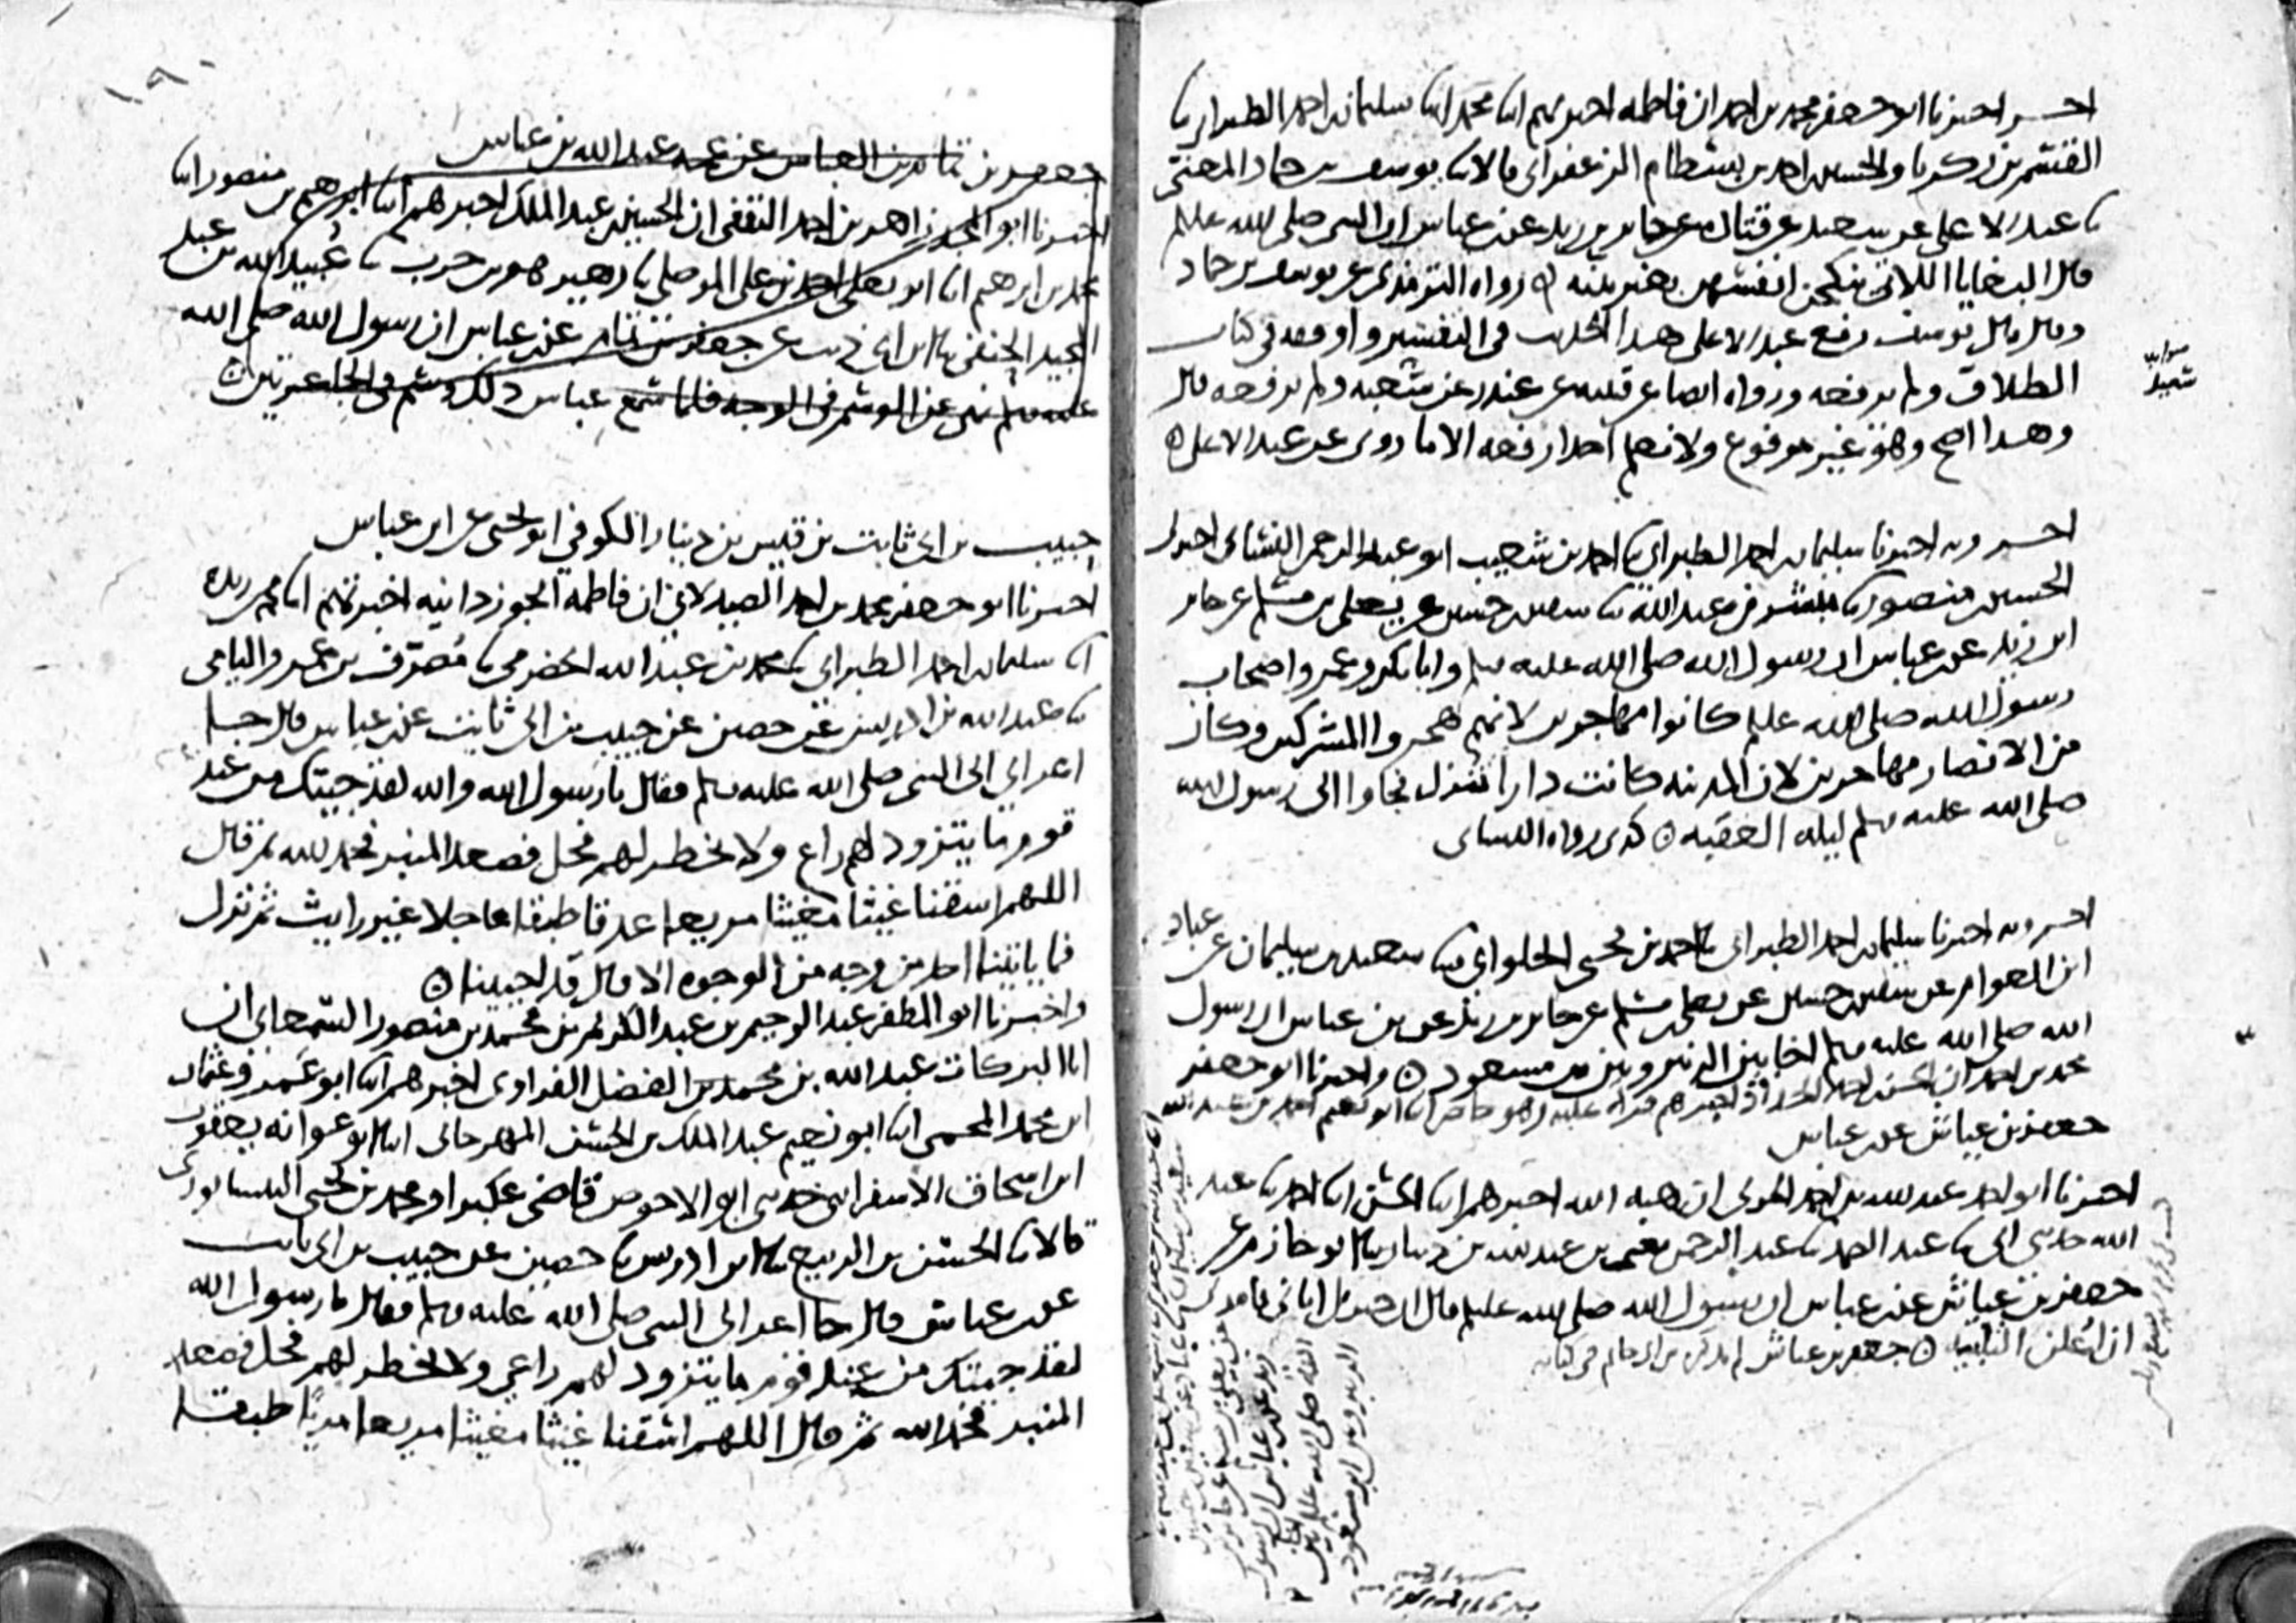 اخر اخبرنا ابو جعفر محمد بن احمد ان فاطمه اخبرتهم انا محمد انا سليمان بن احمد الطبراني نا
القسم بن زكريا والحسين بن احمد بن بسطام الزعفراني قالا نا يوسف بن حماد المعنى
نا عبد الاعلى عن سعيد عن قتاده عن جابر بن زيد عن بن عباس ان النبي صلى الله عليه وسلم
قال البغايا اللاتي ينكحن انفسهن بغير بينه ٥ رواه الترمذي عن يوسف بن حماد
وقال قال يوسف رفع عبد الاعلى هذا الحديث في التفسير واوقفه في كتاب
الطلاق ولم يرفعه ورواه ايضا عن قتيبه عن غندر عن شعبه ولم يرفعه قال
وهذا اصح وهو غير مرفوع ولا نعلم احدا رفعه الا ما روى عن عبد الاعلى ٥
اخر وبه اخبرنا سليمان بن احمد الطبراني نا احمد بن شعيب ابو عبد الرحمن النسائي اخبرني
الحسين بن منصور نا مبشر بن عبد الله نا سفين بن حسين عن يعلى بن مسلم عن جابر
ابن زيد عن بن عباس ان رسول الله صلى الله عليه وسلم وابا بكر وعمر واصحاب
رسول الله صلى الله عليه وسلم كانوا مهاجرين لانهم هجروا المشركين وكان
من الانصار مهاجرين لان المدينه كانت دار شرك فجاوا الى رسول الله
صلى الله عليه وسلم ليله العقبه ٥ كذى رواه النسائي
اخر وبه اخبرنا سليمان بن احمد الطبراني نا احمد بن يحيى الحلواني نا سعيد بن سليمان عن عباد
ابن العوام عن سفين بن حسين عن يعلى بن مسلم عن جابر بن زيد عن بن عباس ان رسول
الله صلى الله عليه وسلم اخا بين الزبير وبين بن مسعود ٥ واخبرنا ابو جعفر
محمد بن احمد ان الحسن بن احمد الحداد اخبرهم قراه عليه وهو حاضر انا ابو نعيم احمد بن عبد الله
جعفر بن عياش عن بن عباس
اخبرنا ابو احمد عبد الله بن احمد الحربي ان هبه الله اخبرهم انا الحسن انا احمد نا عبد
الله حدثني ابي نا عبد الصمد نا عبد الرحمن يعني بن عبد الله بن دينار نا ابو حازم عن
جعفر بن عياش عن بن عباس ان رسول الله صلى الله عليه وسلم قال ان جبريل اتاني فامرني
ان اعلن التلبيه ٥ جعفر بن عياش لم يذكره بن ابي حاتم في كتابه
١٩٠
جعفر بن تمام بن العباس عن عمه عبد الله بن عباس
اخبرنا ابو المجد زاهر بن احمد الثقفي ان الحسين بن عبد الملك اخبرهم انا ابرهيم بن منصور انا
محمد بن ابرهيم انا ابو يعلى احمد بن علي الموصلي نا زهير هو بن حرب نا عبيد الله بن عبد
المجيد الحنفي نا ابن ابي ذيب عن جعفر بن تمام عن بن عباس ان رسول الله صلى الله
عليه وسلم نهى عن الوشم في الوجه فلما سمع عباس ذلك وشم في الجاعرتين ٥
حبيب بن ابي ثابت بن قيس بن دينار الكوفي ابو يحيى عن ابن عباس
اخبرنا ابو جعفر محمد بن احمد الصيدلاني ان فاطمه الجوزدانيه اخبرتهم انا محمد بن ريذه
انا سليمان بن احمد الطبراني نا محمد بن عبد الله الحضرمي نا مصرف بن عمرو اليامي
نا عبد الله بن ادريس عن حصين عن حبيب بن ابي ثابت عن بن عباس قال جا
اعرابي الى النبي صلى الله عليه وسلم فقال يا رسول الله والله لقد جيتك من عند
قوم ما يتزود لهم راع ولا يخطر لهم فحل فصعد المنبر فحمد الله ثم قال
اللهم اسقنا غيثا مغيثا مريعا غدقا طبقا عاجلا غير رايث ثم نزل
فما ياتينا احد من وجه من الوجوه الا قال قد احيينا ٥
واخبرنا ابو المظفر عبد الرحيم بن عبد الكريم بن محمد بن منصور السمعاني ان
ابا البركات عبد الله بن محمد بن الفضل الفراوي اخبرهم انا ابو عمرو عثمان
ابن محمد المحمي انا ابو نعيم عبد الملك بن الحسن المهرجاني انا ابو عوانه يعقوب
ابن اسحاق الاسفرايني حدثني ابو الاحوص قاضي عكبرا ومحمد بن يحيى النيسابوري
قالا نا الحسن بن الربيع نا ابن ادريس نا حصين عن حبيب بن ابي ثابت
عن بن عباس قال جا اعرابي الى النبي صلى الله عليه وسلم فقال يا رسول الله
لقد جيتك من عند قوم ما يتزود لهم راعي ولا يخطر لهم فحل فصعد
المنبر فحمد الله ثم قال اللهم اسقنا غيثا مغيثا مريعا مريا طبقا